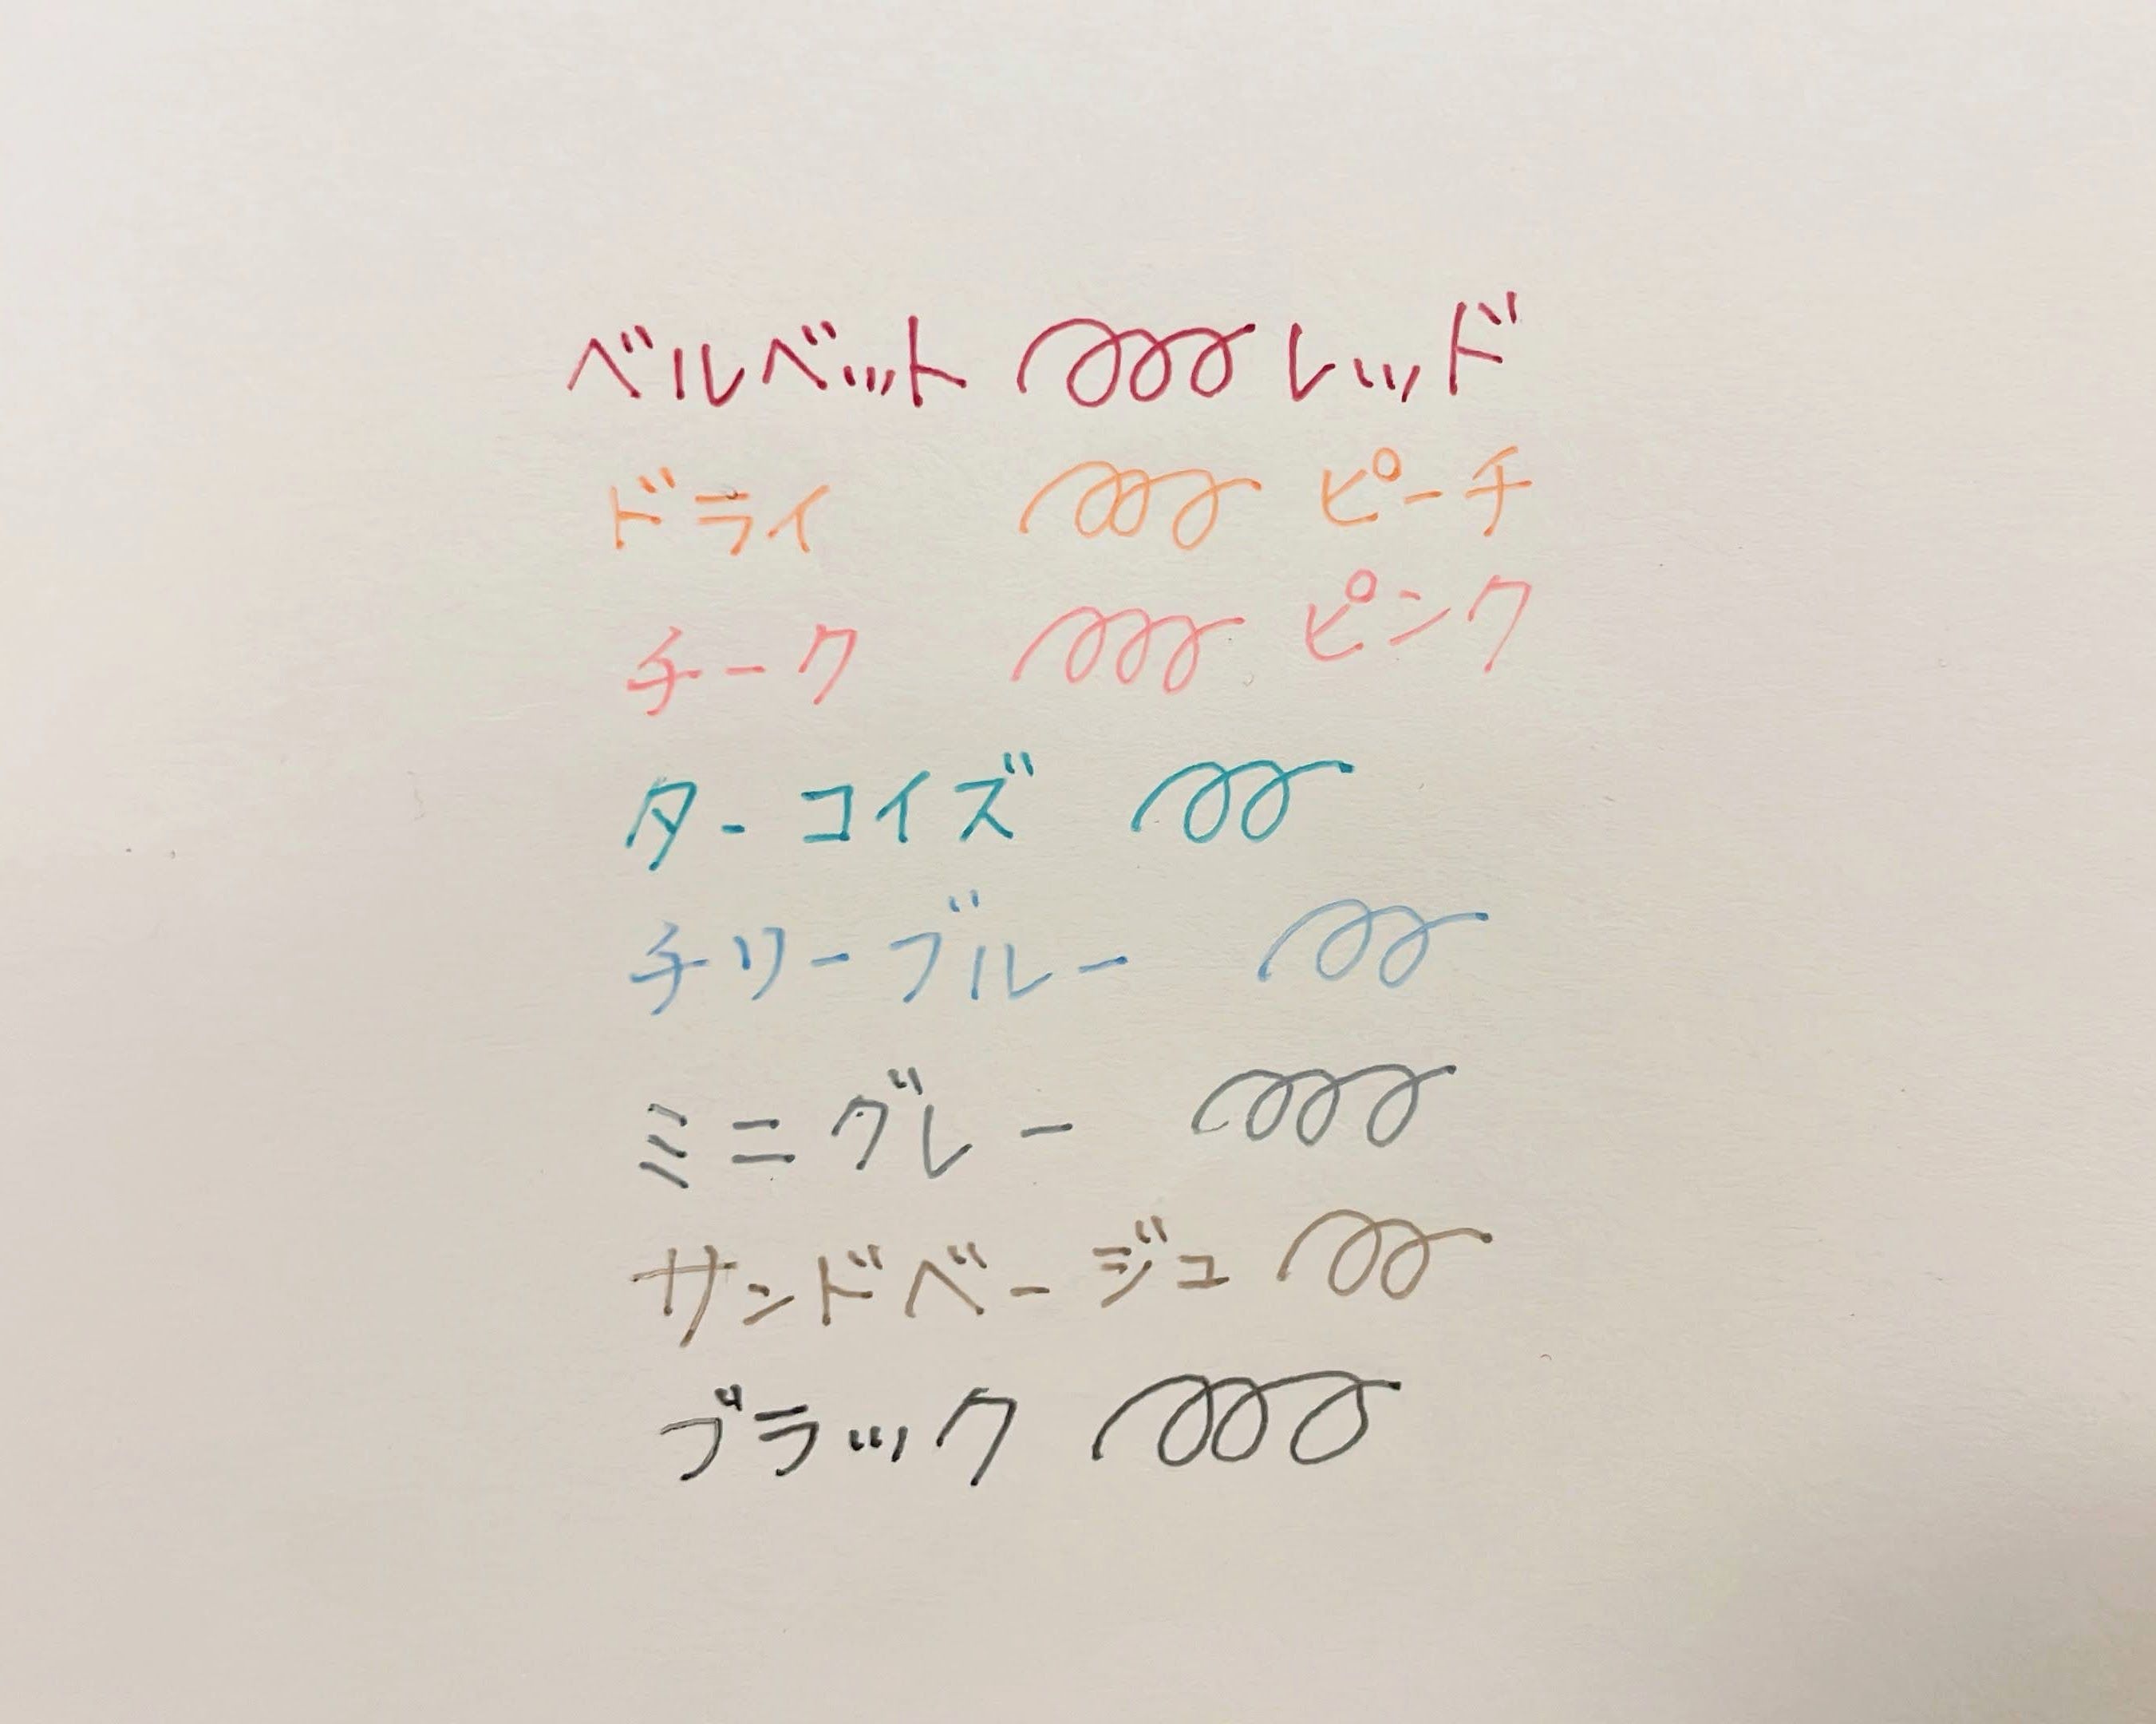 ベルベット レッド
ドライ ピーチ
チーク ピンク
ターコイズ
チリーブルー
ミニグレー
サンドベージュ
ブラック